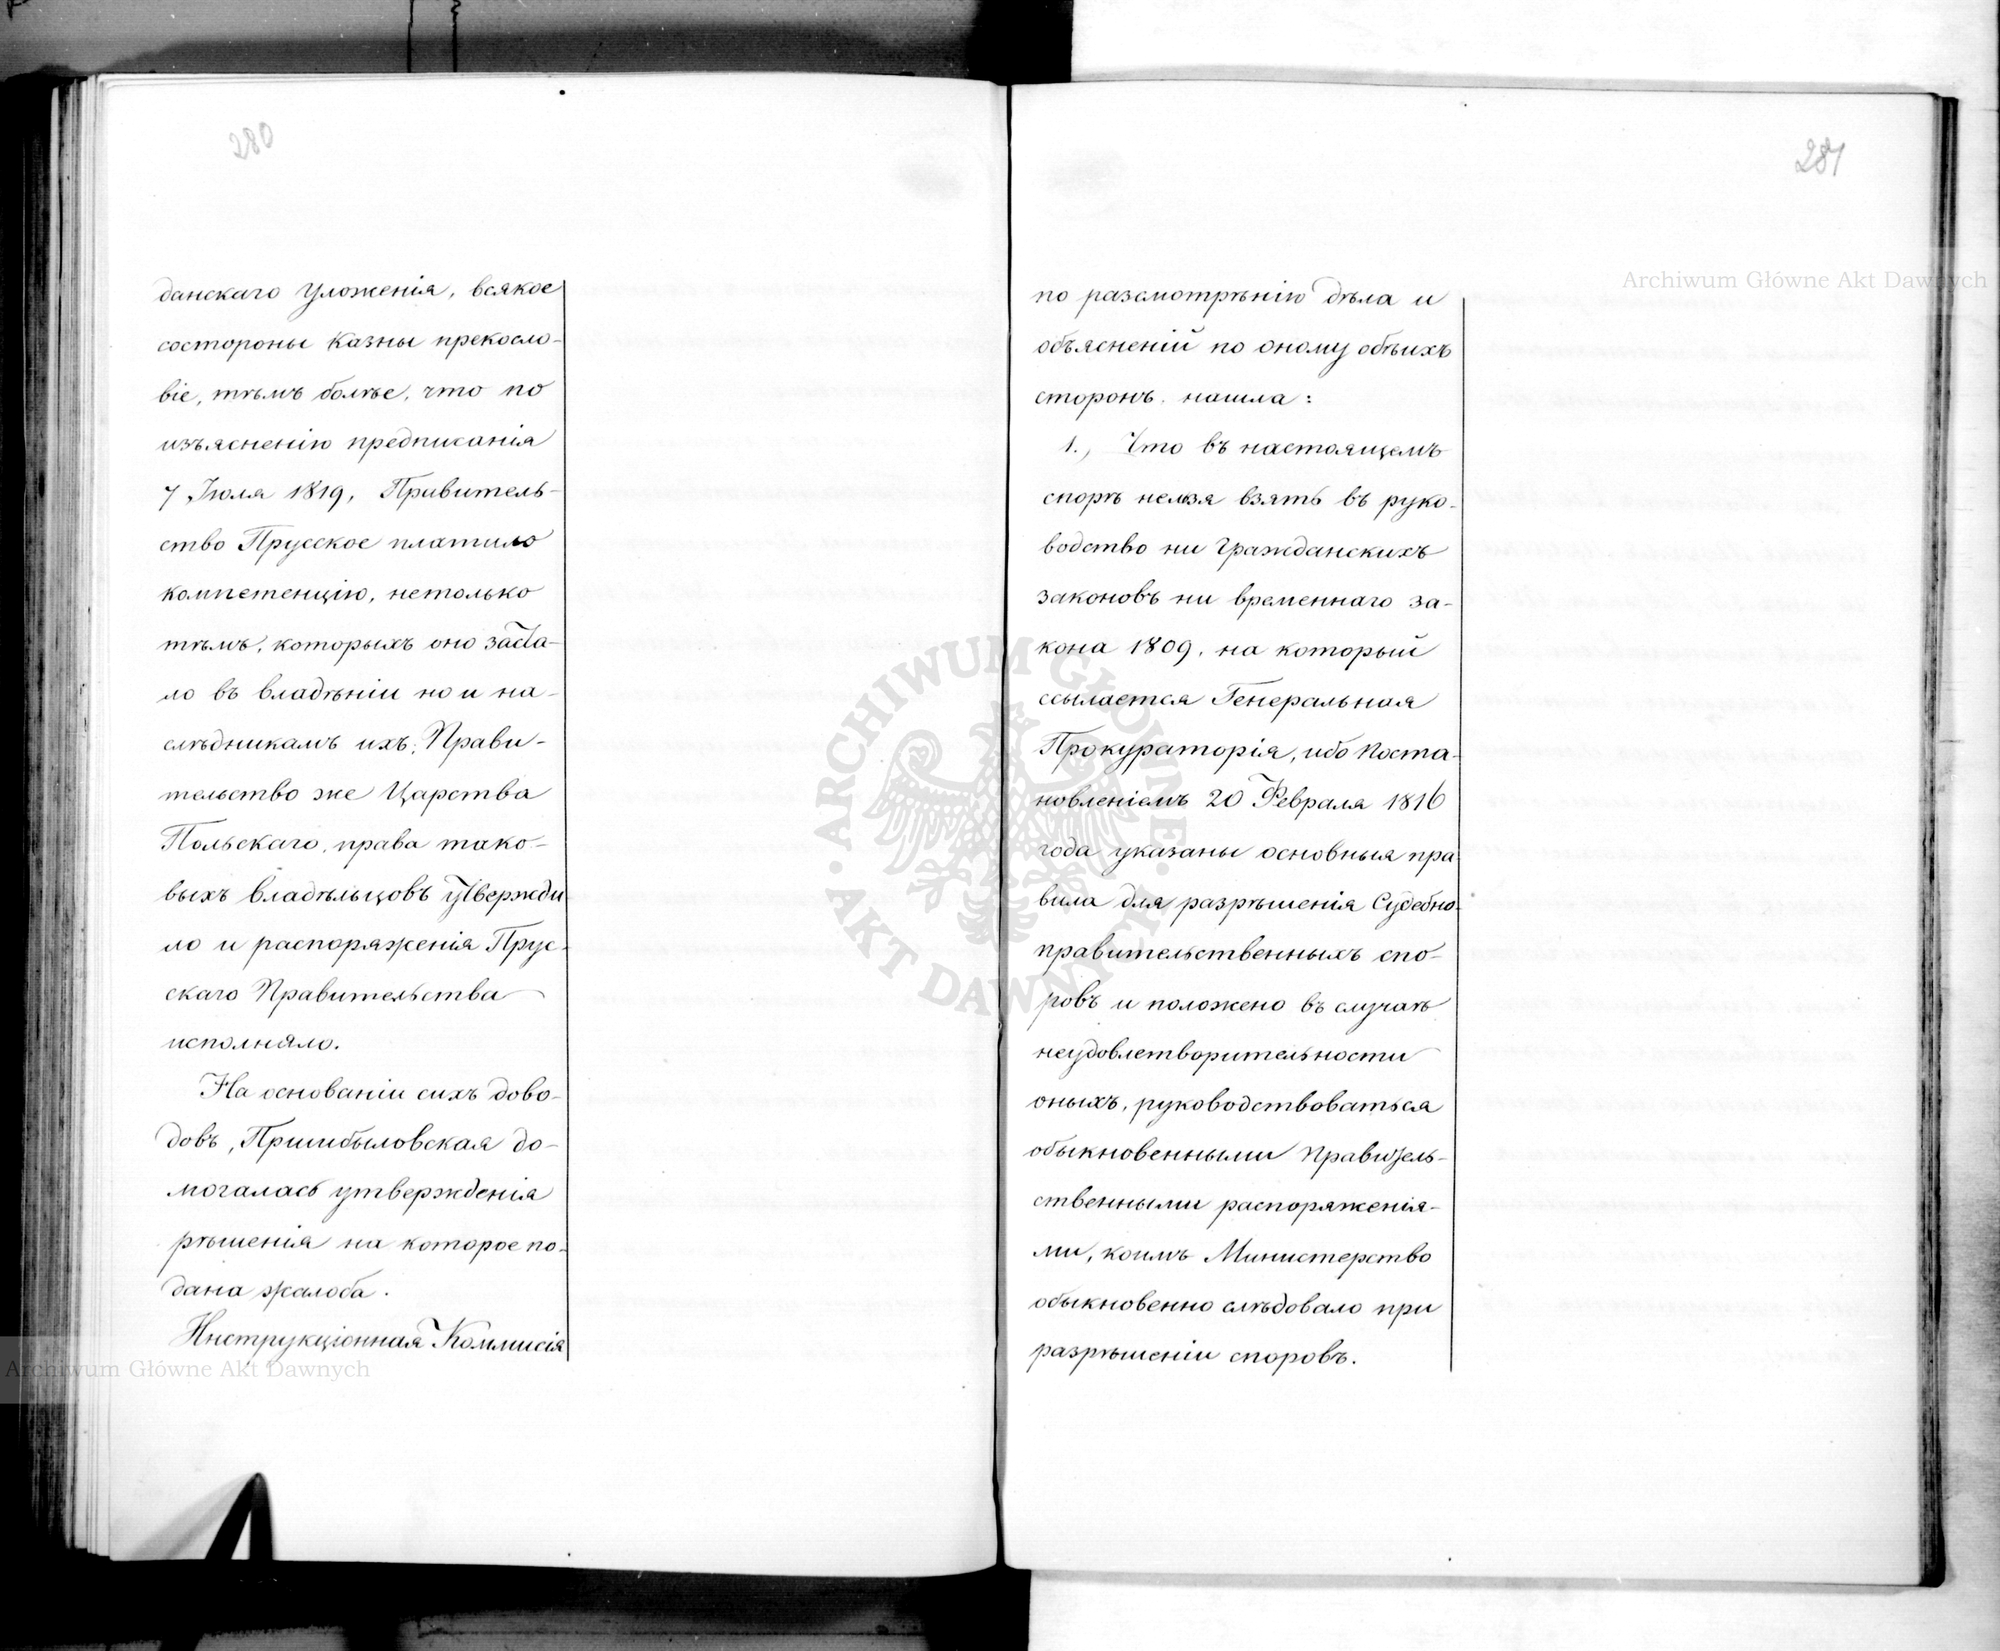 280
данскаго уложенія, всякое
состороны казны прекосло-
віе, тѣмъ болѣе, что по
изъясненію предписанія
7 Іюля 1819, Правитель-
ство Прусское платило
компетенцію, нетолько
тѣмъ, которыхъ оно заста-
ло въ владѣніи но и на-
слѣдникамъ ихъ; Прави-
тельство же Царства
Польскаго, права тако-
выхъ владѣльцовъ утверди
ло и распоряженія Прус-
скаго Правительства
исполняло.
На основаніи сихъ дово-
довъ, Пришибыловская до-
могалась утвержденія
рѣшенія на которое по-
дана жалоба.
Инструкціонная Коммисія
281
по разсмотрѣнію дѣла и
объясненій по оному обѣихъ
сторонъ, нашла:
1., Что въ настоящемъ
спорѣ нельзя взять въ руко-
водство ни гражданскихъ
законовъ ни временнаго за-
кона 1809, на который
ссылается Генеральная
Прокураторія, ибо Поста-
новленіемъ 20 Февраля 1816
года указаны основныя пра
вила для разрѣшенія Судебно-
правительственныхъ спо-
ровъ и положено въ случаѣ
неудовлетворительности
оныхъ, руководствоваться
обыкновенными Правитель-
ственными распоряженія-
ми, коимъ Министерство
обыкновенно слѣдовало при
разрѣшеніи споровъ.
Archiwum Główne Akt Dawnych
ARCHIWUM GŁÓWNE AKT DAWNYCH
Archiwum Główne Akt Dawnych